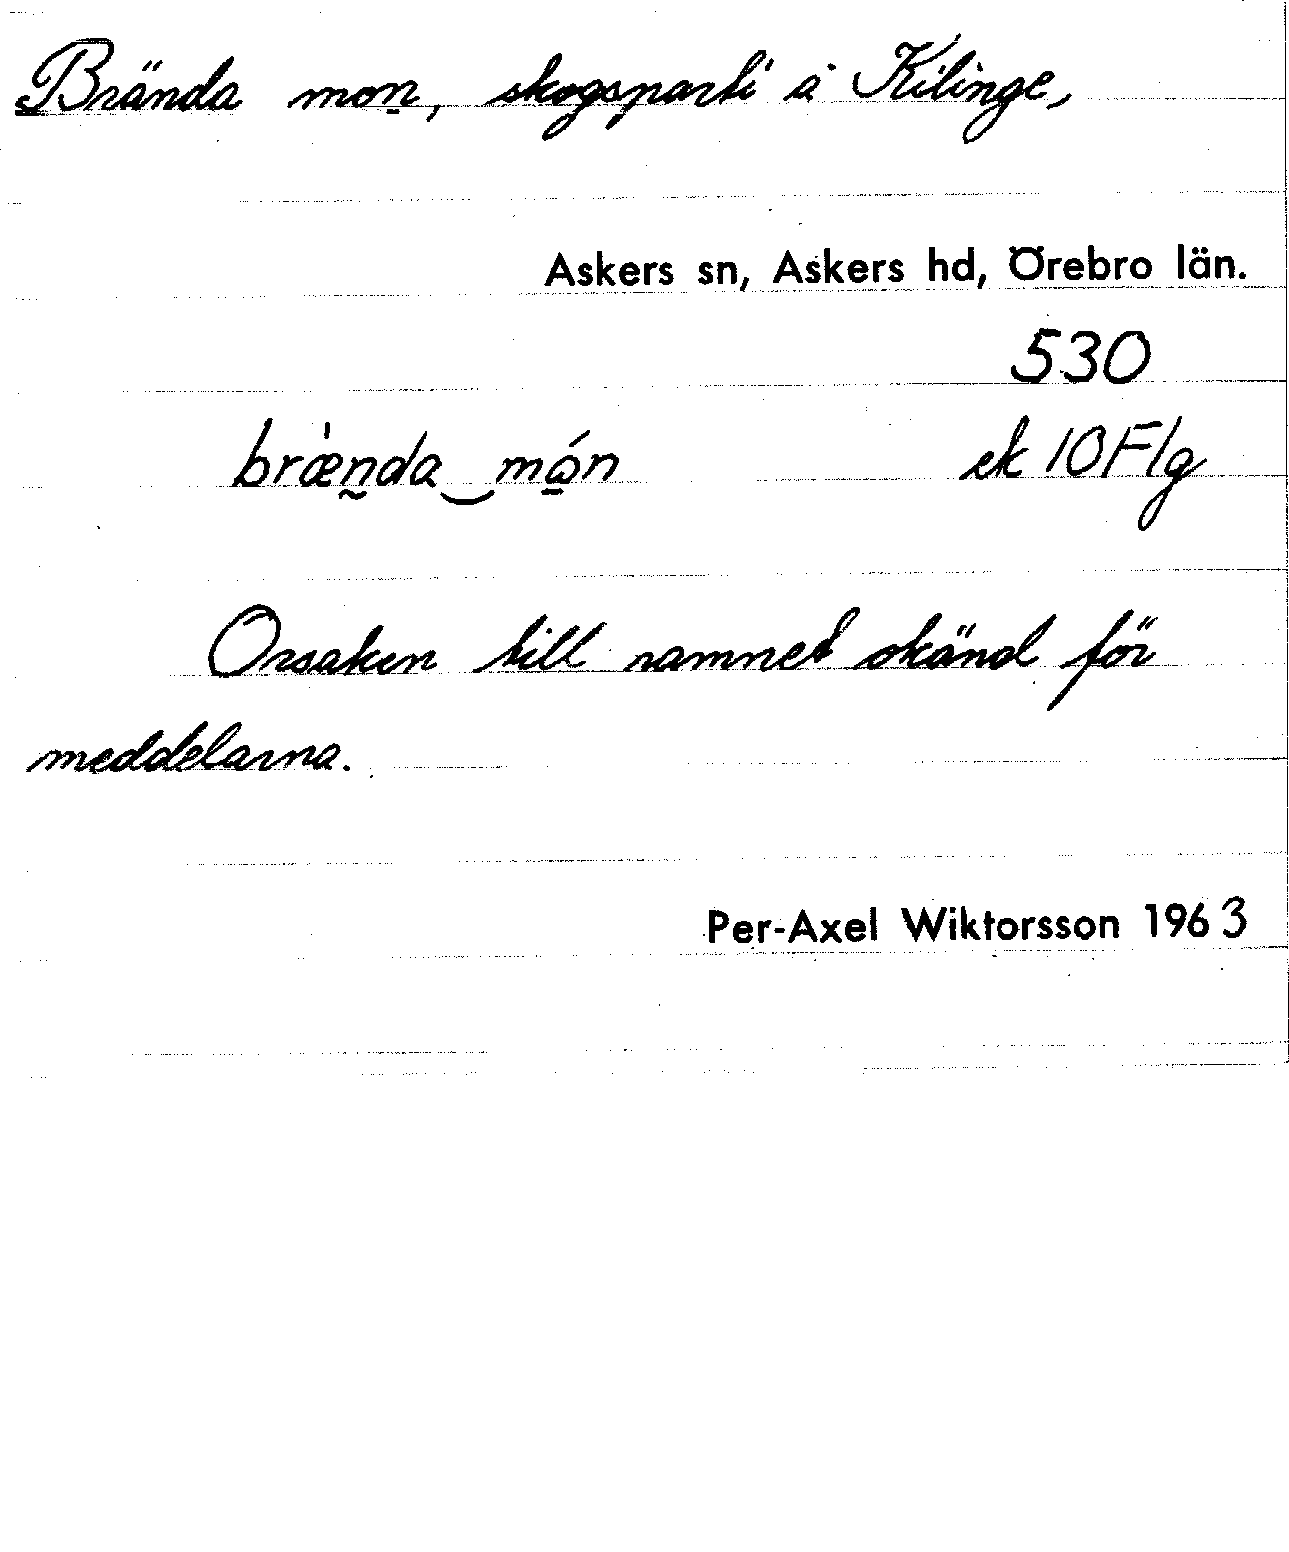 Brända mon, skogsparti å Kilinge,
Askers sn, Askers hd, Örebro län.
530
bræ̀nda‿món ek 10F1g
Orsaken till namnet okänd för
meddelarna.
Per-Axel Wiktorsson 1963